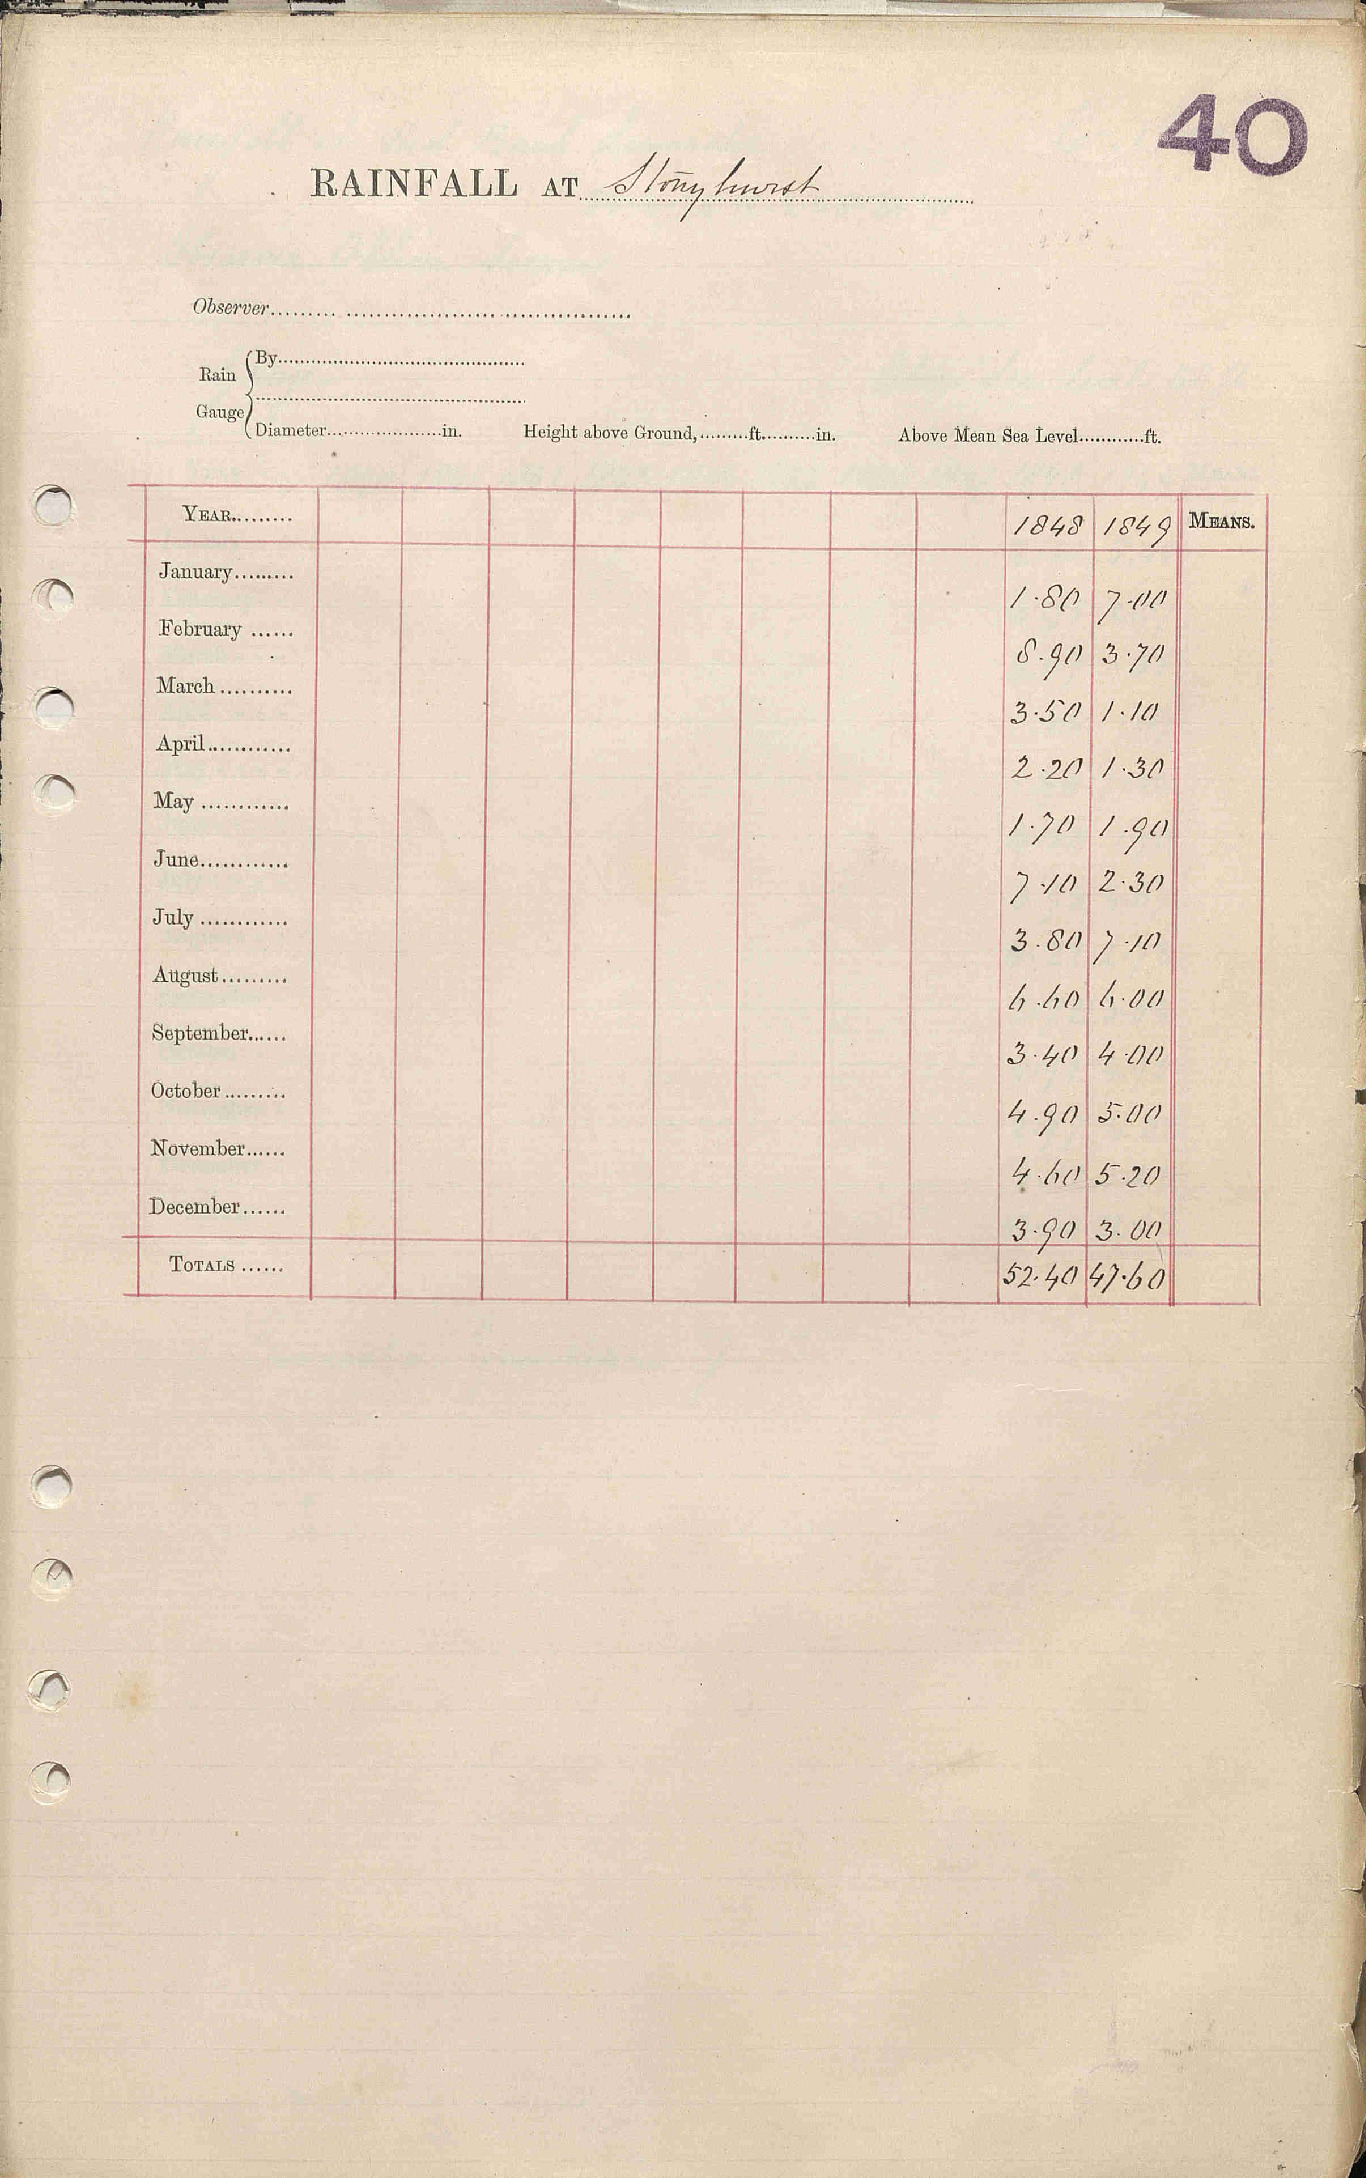 40
RAINFALL AT Stonyhurst
Observer
Rain Gauge
By
Diameter in. Height above Ground, ft. in. Above Mean Sea Level ft.
YEAR 1848 1849 MEANS.
January 1.80 7.00
February 8.90 3.70
March 3.50 1.10
April 2.20 1.30
May 1.70 1.90
June 7.10 2.30
July 3.80 7.10
August 6.60 6.00
September 3.40 4.00
October 4.90 5.00
November 4.60 5.20
December 3.90 3.00
TOTALS 52.40 47.60